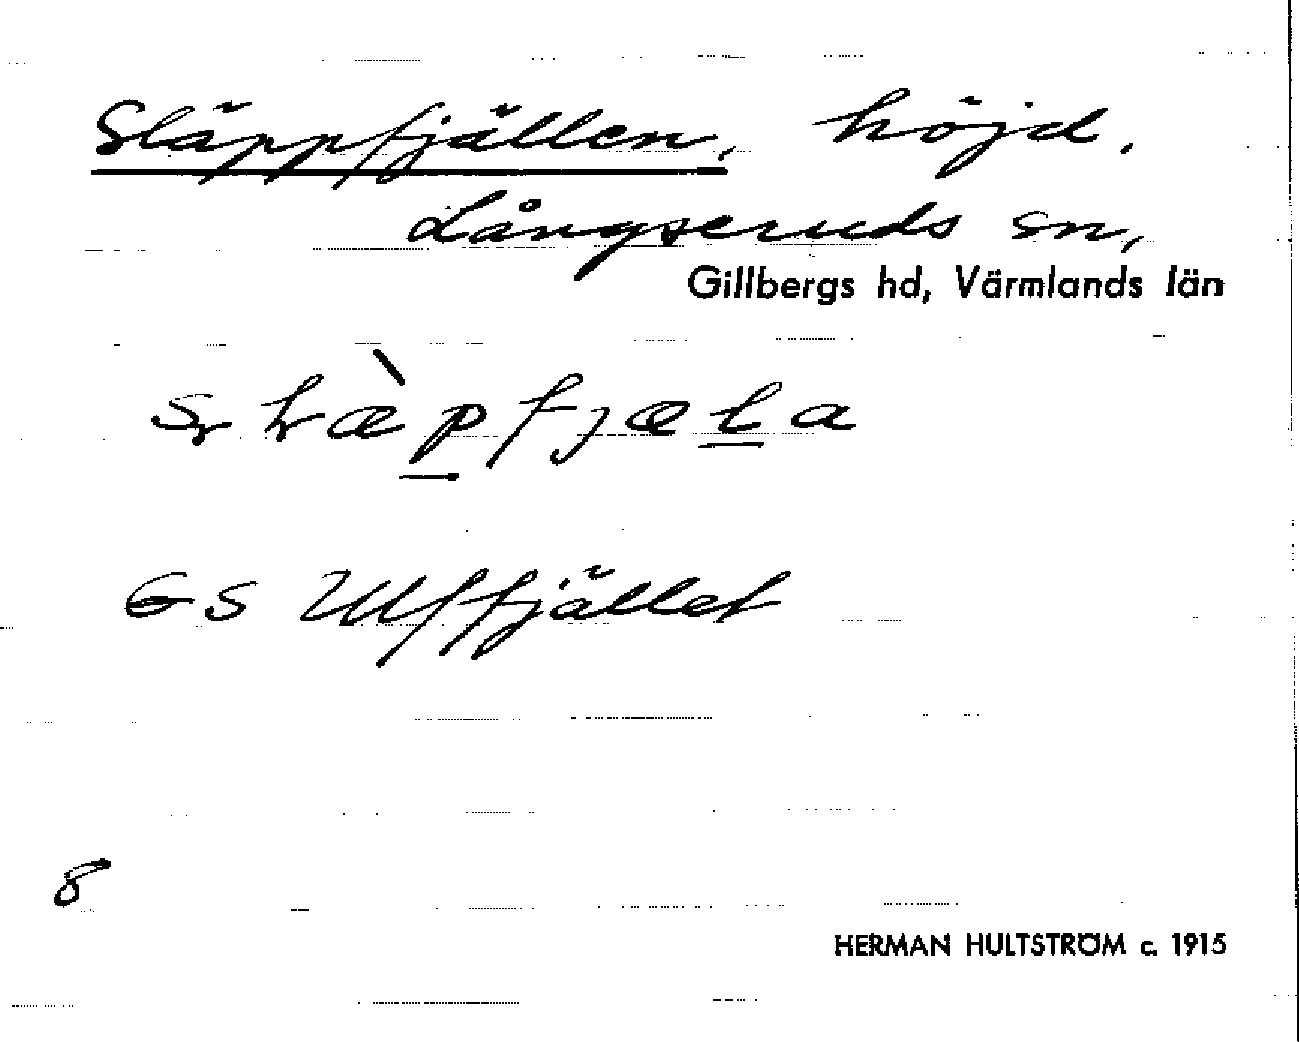 Släppfjällen, höjd.
Långseruds sn,
Gillbergs hd, Värmlands län
GS Ulffjället
8
HERMAN HULTSTRÖM c. 1915